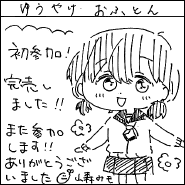 ゆうやけ おふとん
初参加!
完売し
ました!!
また参加
します!!
ありがとうござい
いました